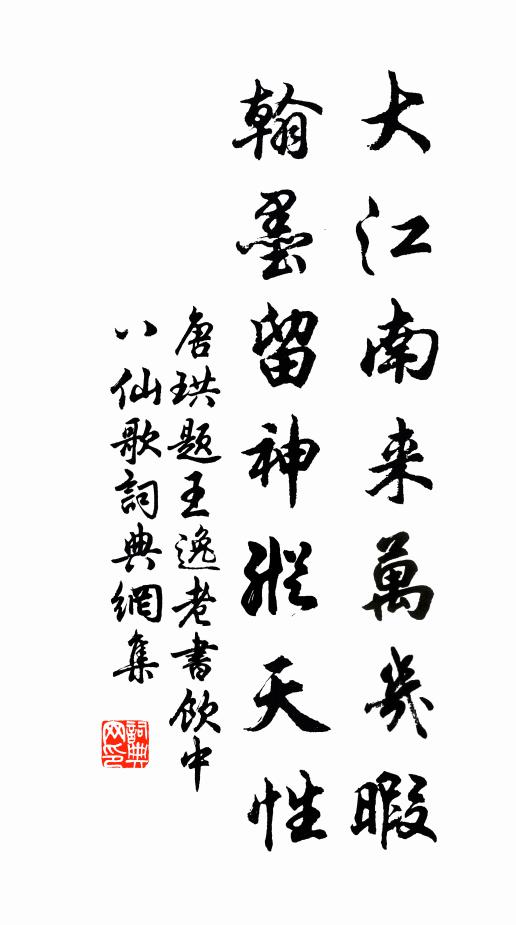 大江南来萬幾暇
翰墨留神縱天性
唐珙题王逸老書飲中
八仙歌詞典網集
詞典網印